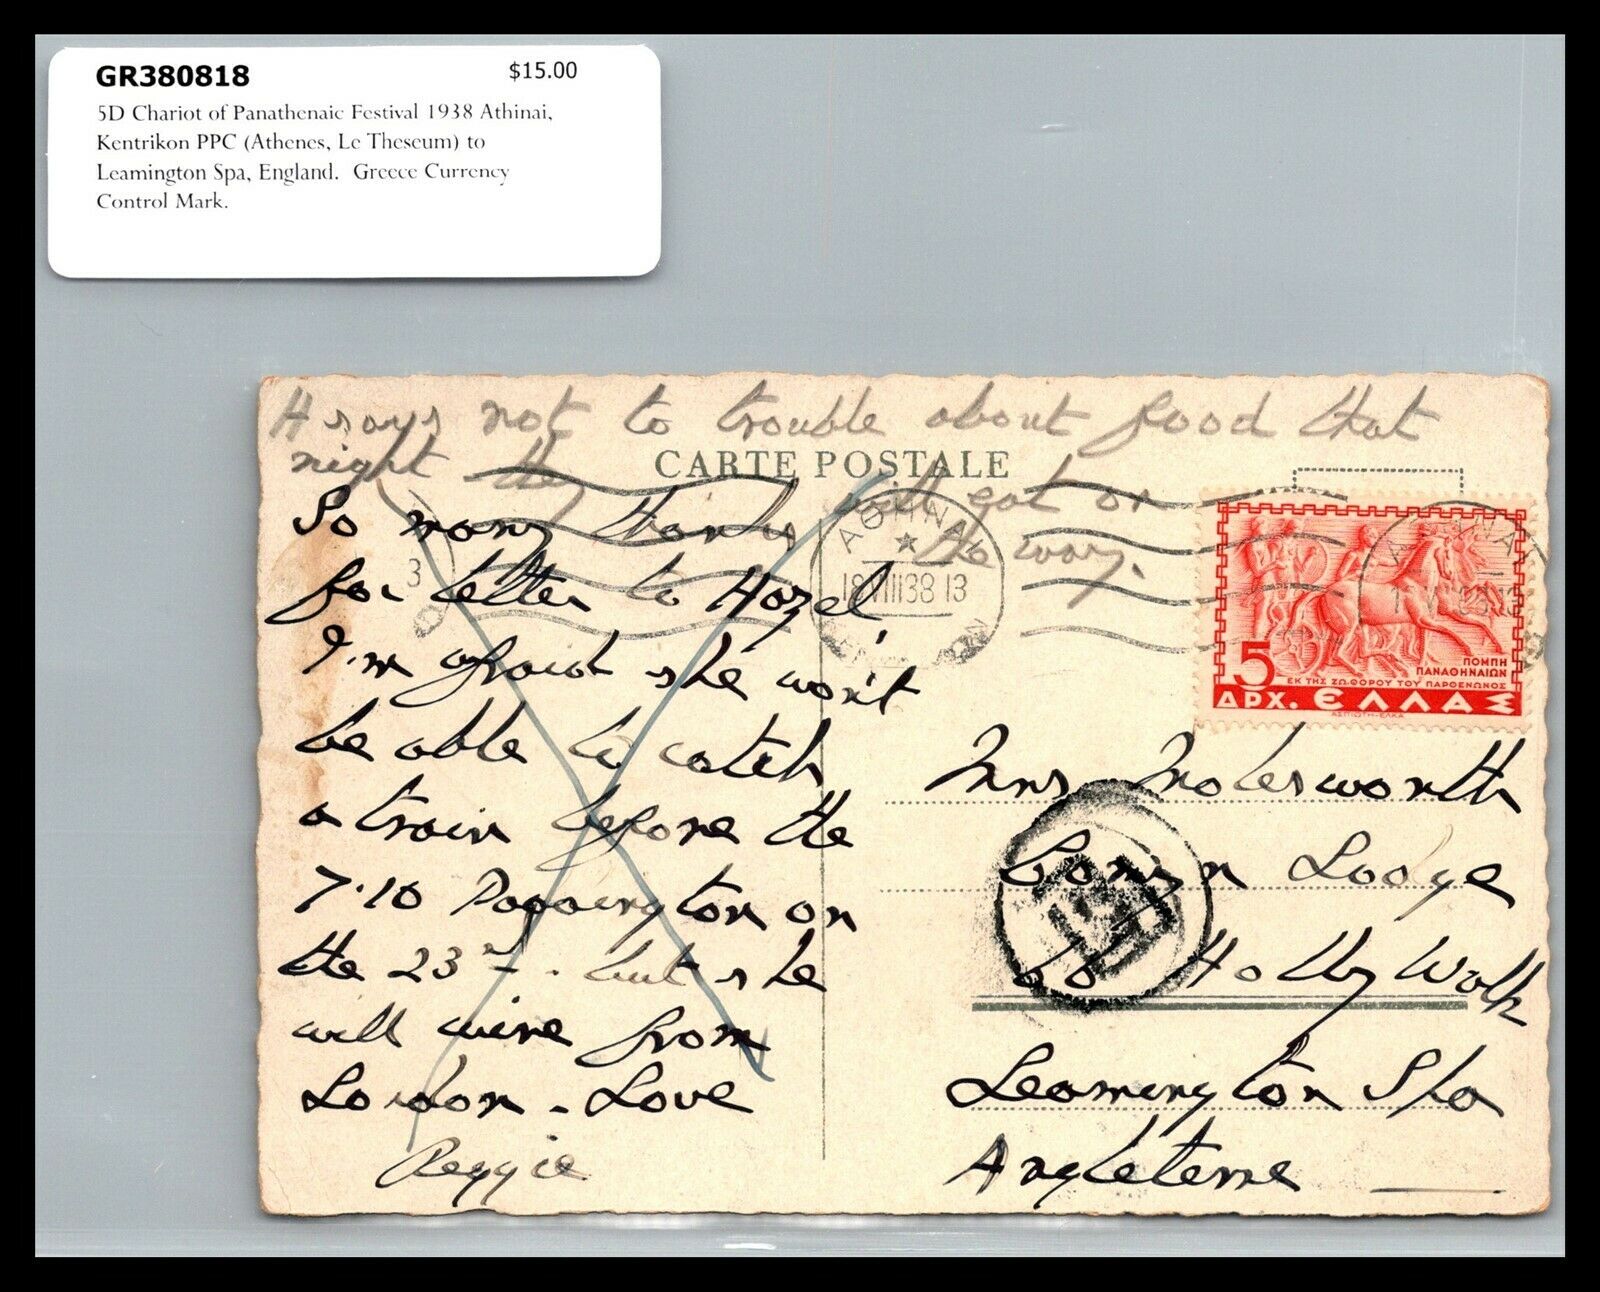 GR380818 $15.00
5D Chariot of Panathenaic Festival 1938 Athinai,
Kentrikon PPC (Athenes, Le Theseum) to
Leamington Spa, England. Greece Currency
Control Mark.
H says not to trouble about food that
night they will eat on
the way.
CARTE POSTALE
So many thanks
for letter to Hazel
I'm afraid she won't
be able to catch
a train before the
7.10 Paddington on
the 23rd - but she
will wire from
London - Love
Reggie
ΑΘΗΝΑΙ
18 VIII 38 13
ΠΟΜΠΗ
ΠΑΝΑΘΗΝΑΙΩΝ
ΕΚ ΤΗΣ ΖΩΦΟΡΟΥ ΤΟΥ ΠΑΡΘΕΝΩΝΟΣ
5
ΔΡΧ. ΕΛΛΑΣ
ΑΣΠΙΩΤΗ-ΕΛΚΑ
Mrs Molesworth
Comyn Lodge
Holly Walk
Leamington Spa
Angleterre